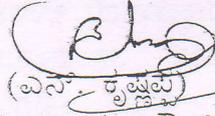 (ಎನ್. ಕೃಷ್ಣಪ್ಪ)